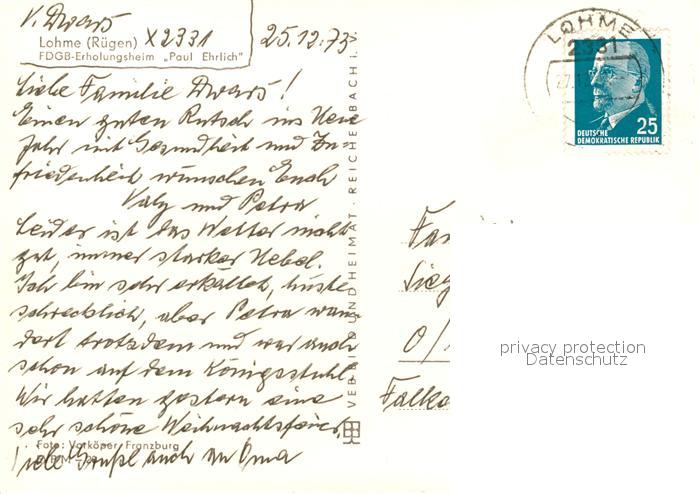 V. Dwars
Lohme (Rügen) X2331
25.12.73
FDGB-Erholungsheim „Paul Ehrlich"
Liebe Familie Dwars!
Einen guten Rutsch ins Neue
Jahr mit Gesundheit und Zu-
friedenheit wünschen Euch
und Petra
Leider ist das Wetter nicht
gut, immer starker Nebel.
Ich bin sehr erkältet, huste
schrecklich, aber Petra wan-
dert trotzdem und war auch
schon auf dem Königsstuhl.
Wir hatten gestern eine
sehr schöne Weihnachtsfeier,
Foto: Vorköper, Franzburg
Viele Grüße auch an Oma
VEB BILD UND HEIMAT · REICHENBACH i. V.
LOHME
2331
25
DEUTSCHE
DEMOKRATISCHE REPUBLIK
Fam
Sieg
O/
Falke
privacy protection
Datenschutz